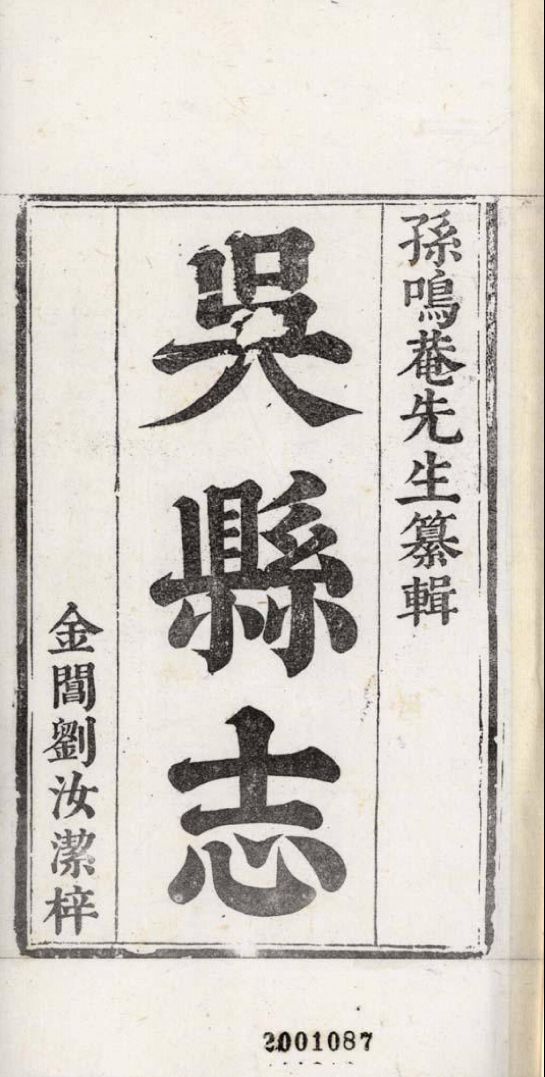 孫鳴菴先生纂輯
吳縣志
金閶劉汝潔梓
2001087